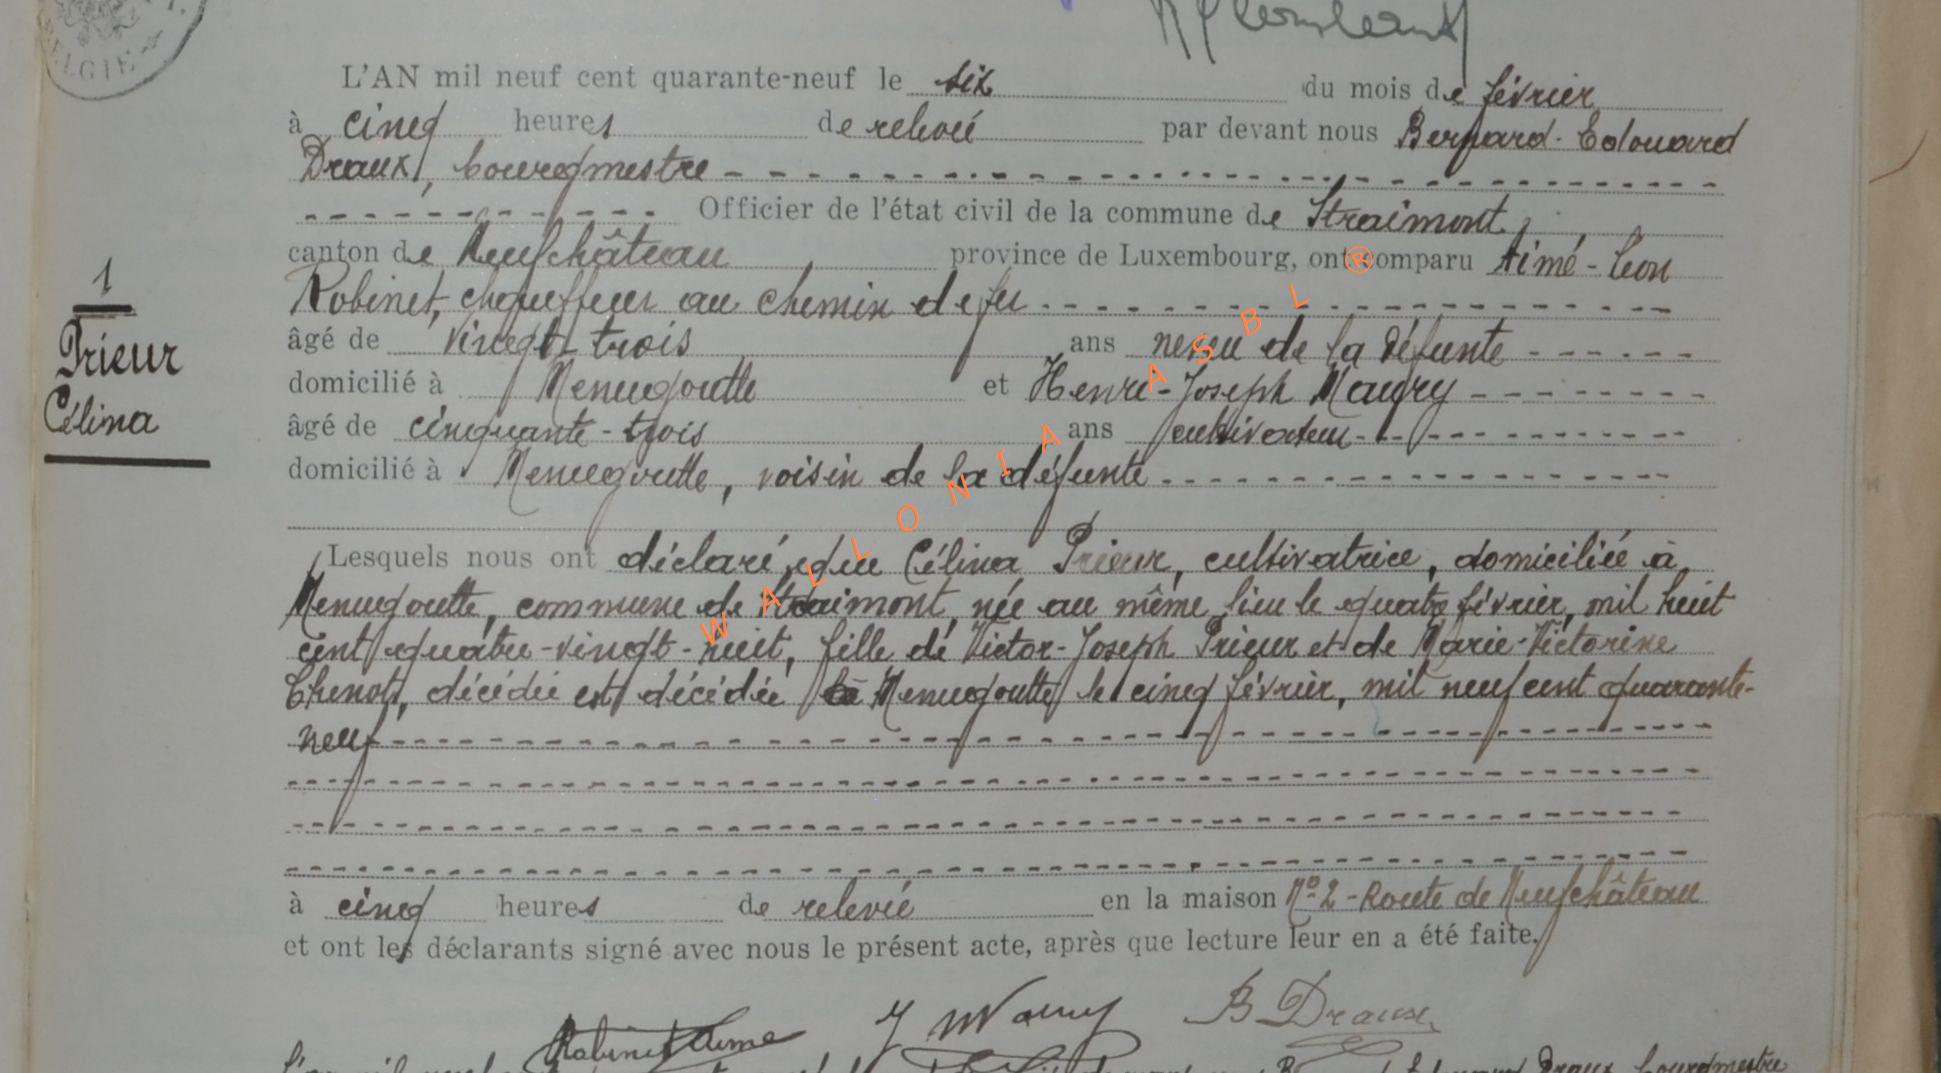 BELGIE
L'AN mil neuf cent quarante-neuf le six du mois de février
à cinq heures de relevée par devant nous Bernard-Edouard
Draux, bourgmestre
Officier de l'état civil de la commune de Straimont,
canton de Neufchâteau province de Luxembourg, ont comparu Aimé-Léon
Robinet, chauffeur au chemin de fer
âgé de vingt-trois ans neveu de la défunte
domicilié à Menugoutte et Henri-Joseph Maury
âgé de cinquante-trois ans cultivateur
domicilié à Menugoutte, voisin de la défunte
1
Prieur
Célina
Lesquels nous ont déclaré que Célina Prieur, cultivatrice, domiciliée à
Menugoutte, commune de Straimont, née au même lieu le quatre février, mil huit
cent quatre-vingt-huit, fille de Victor-Joseph Prieur et de Marie-Victorine
Chenot, décédée est décédée à Menugoutte le cinq février, mil neuf cent quarante-
neuf
à cinq heures de relevée en la maison N° 2 - Route de Neufchâteau
et ont les déclarants signé avec nous le présent acte, après que lecture leur en a été faite.
Robinet Aimé J Maury B Draux
Draux, bourgmestre
WALLONIA ASBL ®